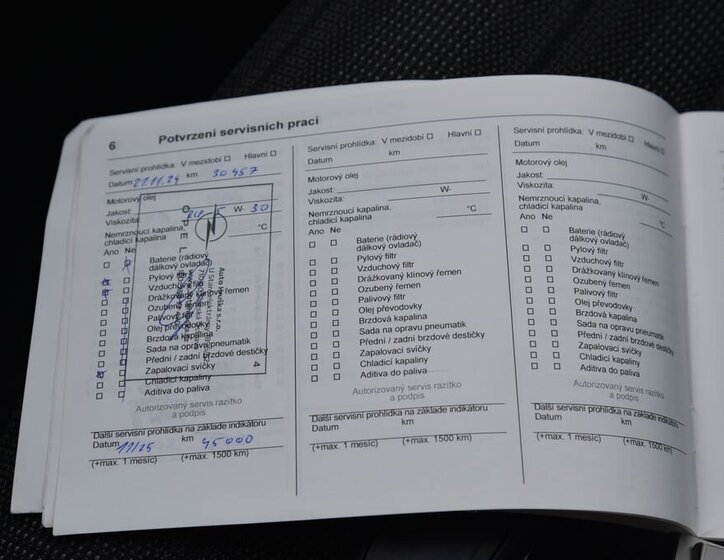 6 Potvrzení servisních prací
Servisní prohlídka: V mezidobí Hlavní
Datum 21.11.24 km 30 457
Motorový olej
Jakost:
Viskozita: W- 30
Nemrznoucí kapalina,
chladicí kapalina °C
Ano Ne
Baterie (rádiový
dálkový ovladač)
Pylový filtr
Vzduchový filtr
Drážkovaný klínový řemen
Ozubený řemen
Palivový filtr
Olej převodovky
Brzdová kapalina
Sada na opravu pneumatik
Přední / zadní brzdové destičky
Zapalovací svíčky
Chladicí kapaliny
Aditiva do paliva
OPEL
s.r.o.
4
Autorizovaný servis razítko
a podpis
Další servisní prohlídka na základe indikátoru
Datum 11/25 km 45000
(+max. 1 mesíc) (+max. 1500 km)
Servisní prohlídka: V mezidobí Hlavní
Datum km
Motorový olej
Jakost:
Viskozita: W-
Nemrznoucí kapalina,
chladicí kapalina °C
Ano Ne
Baterie (rádiový
dálkový ovladač)
Pylový filtr
Vzduchový filtr
Drážkovaný klínový řemen
Ozubený řemen
Palivový filtr
Olej převodovky
Brzdová kapalina
Sada na opravu pneumatik
Přední / zadní brzdové destičky
Zapalovací svíčky
Chladicí kapaliny
Aditiva do paliva
Autorizovaný servis razítko
a podpis
Další servisní prohlídka na základe indikátoru
Datum km
(+max. 1 mesíc) (+max. 1500 km)
Servisní prohlídka: V mezidobí Hlavní
Datum km
Motorový olej
Jakost:
Viskozita: W-
Nemrznoucí kapalina,
chladicí kapalina °C
Ano Ne
Baterie (rádiový
dálkový ovladač)
Pylový filtr
Vzduchový filtr
Drážkovaný klínový řemen
Ozubený řemen
Palivový filtr
Olej převodovky
Brzdová kapalina
Sada na opravu pneumatik
Přední / zadní brzdové destičky
Zapalovací svíčky
Chladicí kapaliny
Aditiva do paliva
Autorizovaný servis razítko
a podpis
Další servisní prohlídka na základe indikátoru
Datum km
(+max. 1 mesíc) (+max. 1500 km)